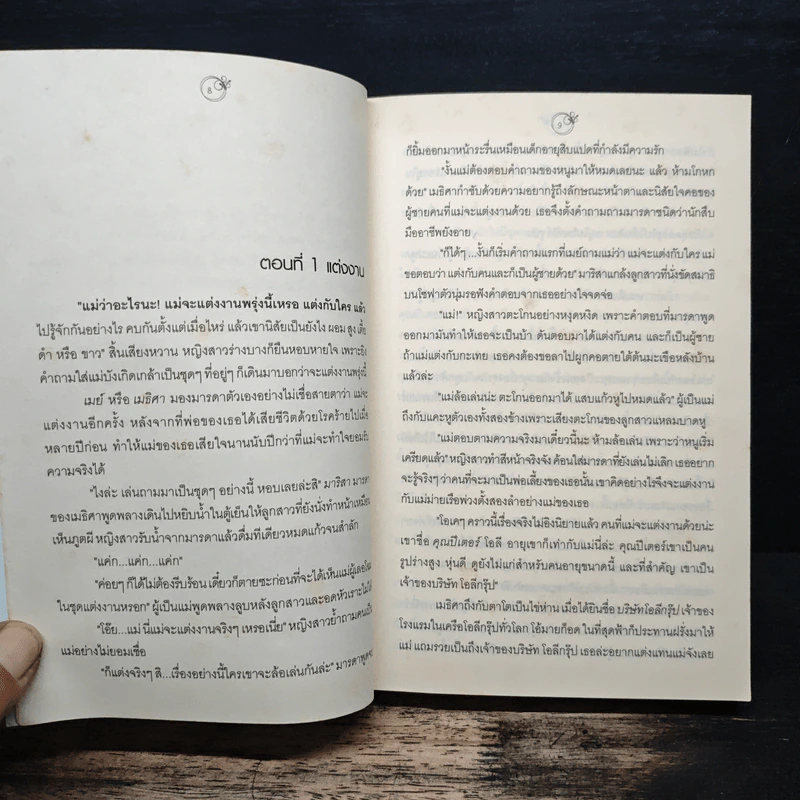 8
ตอนที่ 1 แต่งงาน
"แม่ว่าอะไรนะ! แม่จะแต่งงานพรุ่งนี้เหรอ แต่งกับใคร แล้ว
ไปรู้จักกันอย่างไร คบกันตั้งแต่เมื่อไหร่ แล้วเขานิสัยเป็นยังไง ผอม สูง เตี้ย
ดำ หรือ ขาว" สิ้นเสียงหวาน หญิงสาวร่างบางก็ยืนหอบหายใจ เพราะยิง
คำถามใส่แม่บังเกิดเกล้าเป็นชุดๆ ที่อยู่ๆ ก็เดินมาบอกว่าจะแต่งงานพรุ่งนี้
เมย์ หรือ เมธิศา มองมารดาตัวเองอย่างไม่เชื่อสายตาว่า แม่จะ
แต่งงานอีกครั้ง หลังจากที่พ่อของเธอได้เสียชีวิตด้วยโรคร้ายไปเมื่อ
หลายปีก่อน ทำให้แม่ของเธอเสียใจนานนับปีกว่าที่แม่จะทำใจยอมรับ
ความจริงได้
"ไงล่ะ เล่นถามมาเป็นชุดๆ อย่างนี้ หอบเลยล่ะสิ" มาริสา มารดา
ของเมธิศาพูดพลางเดินไปหยิบน้ำในตู้เย็นให้ลูกสาวที่ยังนั่งทำหน้าเหมือน
เห็นภูตผี หญิงสาวรับน้ำจากมารดาแล้วดื่มทีเดียวหมดแก้วจนสำลัก
"แค่ก...แค่ก...แค่ก"
"ค่อยๆ ก็ได้ไม่ต้องรีบร้อน เดี๋ยวก็ตายซะก่อนที่จะได้เห็นแม่ผู้เลอโฉม
ในชุดแต่งงานหรอก" ผู้เป็นแม่พูดพลางลูบหลังลูกสาวและอดหัวเราะไม่ได้
"โอ๊ย...แม่ นี่แม่จะแต่งงานจริงๆ เหรอเนี่ย" หญิงสาวย้ำถามคนเป็น
แม่อย่างไม่ยอมเชื่อ
"ก็แต่งจริงๆ สิ...เรื่องอย่างนี้ใครเขาจะล้อเล่นกันล่ะ" มารดาพูดจบ
9
ก็ยิ้มออกมาหน้าระรื่นเหมือนเด็กอายุสิบแปดที่กำลังมีความรัก
"งั้นแม่ต้องตอบคำถามของหนูมาให้หมดเลยนะ แล้ว ห้ามโกหก
ด้วย" เมธิศากำชับด้วยความอยากรู้ถึงลักษณะหน้าตาและนิสัยใจคอของ
ผู้ชายคนที่แม่จะแต่งงานด้วย เธอจึงตั้งคำถามถามมารดาชนิดว่านักสืบ
มืออาชีพยังอาย
"ก็ได้ๆ ...งั้นก็เริ่มคำถามแรกที่เมย์ถามแม่ว่า แม่จะแต่งกับใคร แม่
ขอตอบว่า แต่งกับคนและก็เป็นผู้ชายด้วย" มาริสาแกล้งลูกสาวที่นั่งขัดสมาธิ
บนโซฟาตัวนุ่มรอฟังคำตอบจากเธออย่างใจจดจ่อ
"แม่!" หญิงสาวตะโกนอย่างหงุดหงิด เพราะคำตอบที่มารดาพูด
ออกมามันทำให้เธอจะเป็นบ้า ดันตอบมาได้แต่งกับคน และก็เป็นผู้ชาย
ถ้าแม่แต่งกับกะเทย เธอคงต้องขอลาไปผูกคอตายใต้ต้นมะเขือหลังบ้าน
แล้วล่ะ
"แม่ล้อเล่นน่ะ ตะโกนออกมาได้ แสบแก้วหูไปหมดแล้ว" ผู้เป็นแม่
ถึงกับแคะหูตัวเองทั้งสองข้างเพราะเสียงตะโกนของลูกสาวแหลมบาดหู
"แม่ตอบตามความจริงมาเดี๋ยวนี้นะ ห้ามล้อเล่น เพราะว่าหนูเริ่ม
เครียดแล้ว" หญิงสาวทำสีหน้าจริงจัง ค้อนใส่มารดาที่ยังเล่นไม่เลิก เธออยาก
จะรู้จริงๆ ว่าคนที่จะมาเป็นพ่อเลี้ยงของเธอนั้น เขาคิดอย่างไรจึงจะแต่งงาน
กับแม่ม่ายเรือพ่วงตั้งสองลำอย่างแม่ของเธอ
"โอเคๆ คราวนี้เรื่องจริงไม่อิงนิยายแล้ว คนที่แม่จะแต่งงานด้วยน่ะ
เขาชื่อ คุณปีเตอร์ โอลี อายุเขาก็เท่ากับแม่นี่ล่ะ คุณปีเตอร์เขาเป็นคน
รูปร่างสูง หุ่นดี ดูยังไม่แก่สำหรับคนอายุขนาดนี้ และที่สำคัญ เขาเป็น
เจ้าของบริษัท โอลีกรุ๊ป"
เมธิศาถึงกับตาโตเป็นไข่ห่าน เมื่อได้ยินชื่อ บริษัทโอลีกรุ๊ป เจ้าของ
โรงแรมในเครือโอลีกรุ๊ปทั่วโลก โอ้มายก็อด ในที่สุดฟ้าก็ประทานฝรั่งมาให้
แม่ แถมรวยเป็นถึงเจ้าของบริษัท โอลีกรุ๊ป เธอล่ะอยากแต่งแทนแม่จังเลย